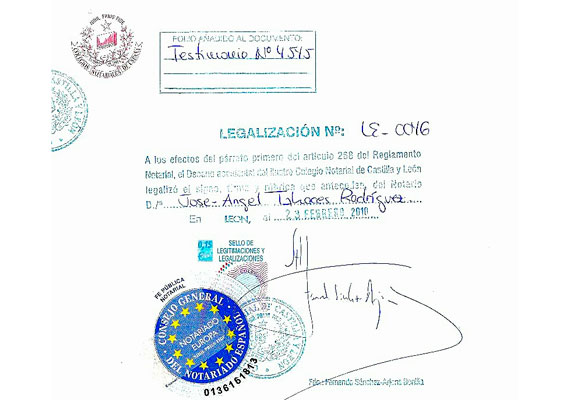 NIHIL PRIUS FIDE
COLEGIOS NOTARIALES DE ESPAÑA
FOLIO AÑADIDO AL DOCUMENTO:
Testimonio Nº 4515
CASTILLA Y LEÓN
LEGALIZACIÓN Nº: LE-0046
A los efectos del párrafo primero del artículo 268 del Reglamento
Notarial, el Decano del Ilustre Colegio Notarial de Castilla y León
legalizó el signo, firma y rúbrica que anteceden, del Notario
D./ª Jose-Angel Tahoces Rodríguez
En LEON, al 23 FEBRERO 2010
0,15
SELLO DE
LEGITIMACIONES Y
LEGALIZACIONES
FE PÚBLICA
NOTARIAL
CONSEJO GENERAL
DEL NOTARIADO ESPAÑOL
NOTARIADO
EUROPA
NIHIL PRIUS FIDE
0136161813
DE CASTILLA Y LEÓN
Fdo.: Fernando Sánchez-Arjona Bonilla